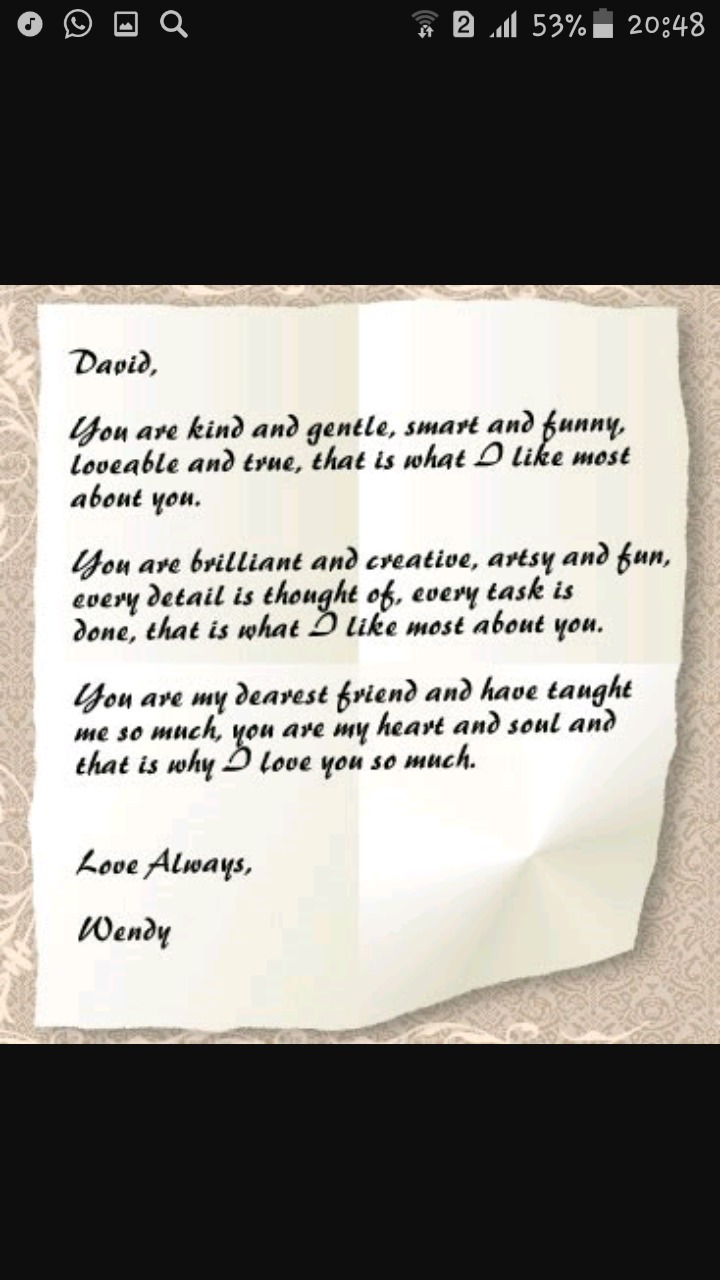 2 53% 20:48
David,
You are kind and gentle, smart and funny,
loveable and true, that is what I like most
about you.
You are brilliant and creative, artsy and fun,
every detail is thought of, every task is
done, that is what I like most about you.
You are my dearest friend and have taught
me so much, you are my heart and soul and
that is why I love you so much.
Love Always,
Wendy